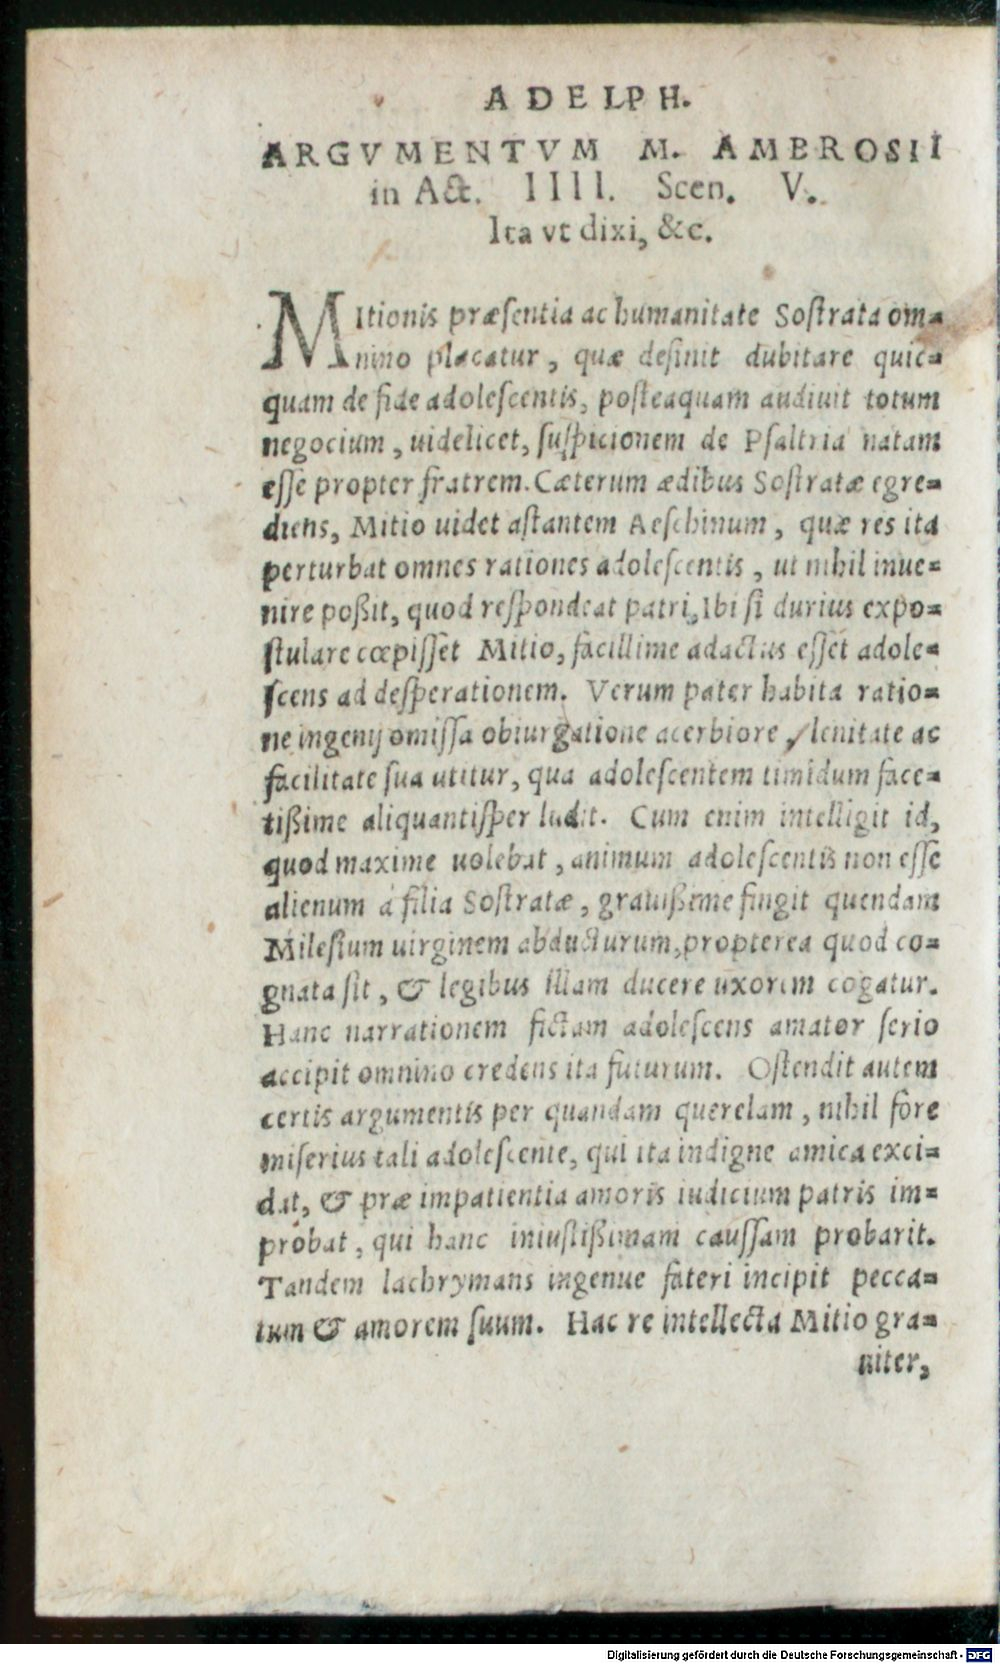 ADELPH.
ARGVMENTVM M. AMBROSII
in Act. IIII. Scen. V.
Ita vt dixi, &c.
MItionis præsentia ac humanitate Sostrata om=
nino placatur, quæ desinit dubitare quic=
quam de fide adolescentis, posteaquam audiuit totum
negocium, uidelicet, suspicionem de Psaltria natam
esse propter fratrem. Cæterum ædibus Sostratæ egre=
diens, Mitio uidet astantem Aeschinum, quæ res ita
perturbat omnes rationes adolescentis, ut nihil inue=
nire poßit, quod respondeat patri, Ibi si durius expo=
stulare cœpisset Mitio, facillime adactus esset adole=
scens ad desperationem. Verum pater habita ratio=
ne ingenij omissa obiurgatione acerbiore, lenitate ac
facilitate sua utitur, qua adolescentem timidum face=
tißime aliquantisper ludit. Cum enim intelligit id,
quod maxime uolebat, animum adolescentis non esse
alienum á filia Sostratæ, grauißime fingit quendam
Milesium uirginem abducturum, propterea quod co=
gnata sit, & legibus illam ducere uxorem cogatur.
Hanc narrationem fictam adolescens amator serio
accipit omnino credens ita futurum. Ostendit autem
certis argumentis per quandam querelam, nihil fore
miserius tali adolescente, qui ita indigne amica exci=
dat, & præ impatientia amoris iudicium patris im=
probat, qui hanc iniustißimam caussam probarit.
Tandem lachrymans ingenue fateri incipit pecca=
tum & amorem suum. Hac re intellecta Mitio gra=
uiter,
Digitalisierung gefördert durch die Deutsche Forschungsgemeinschaft - DFG